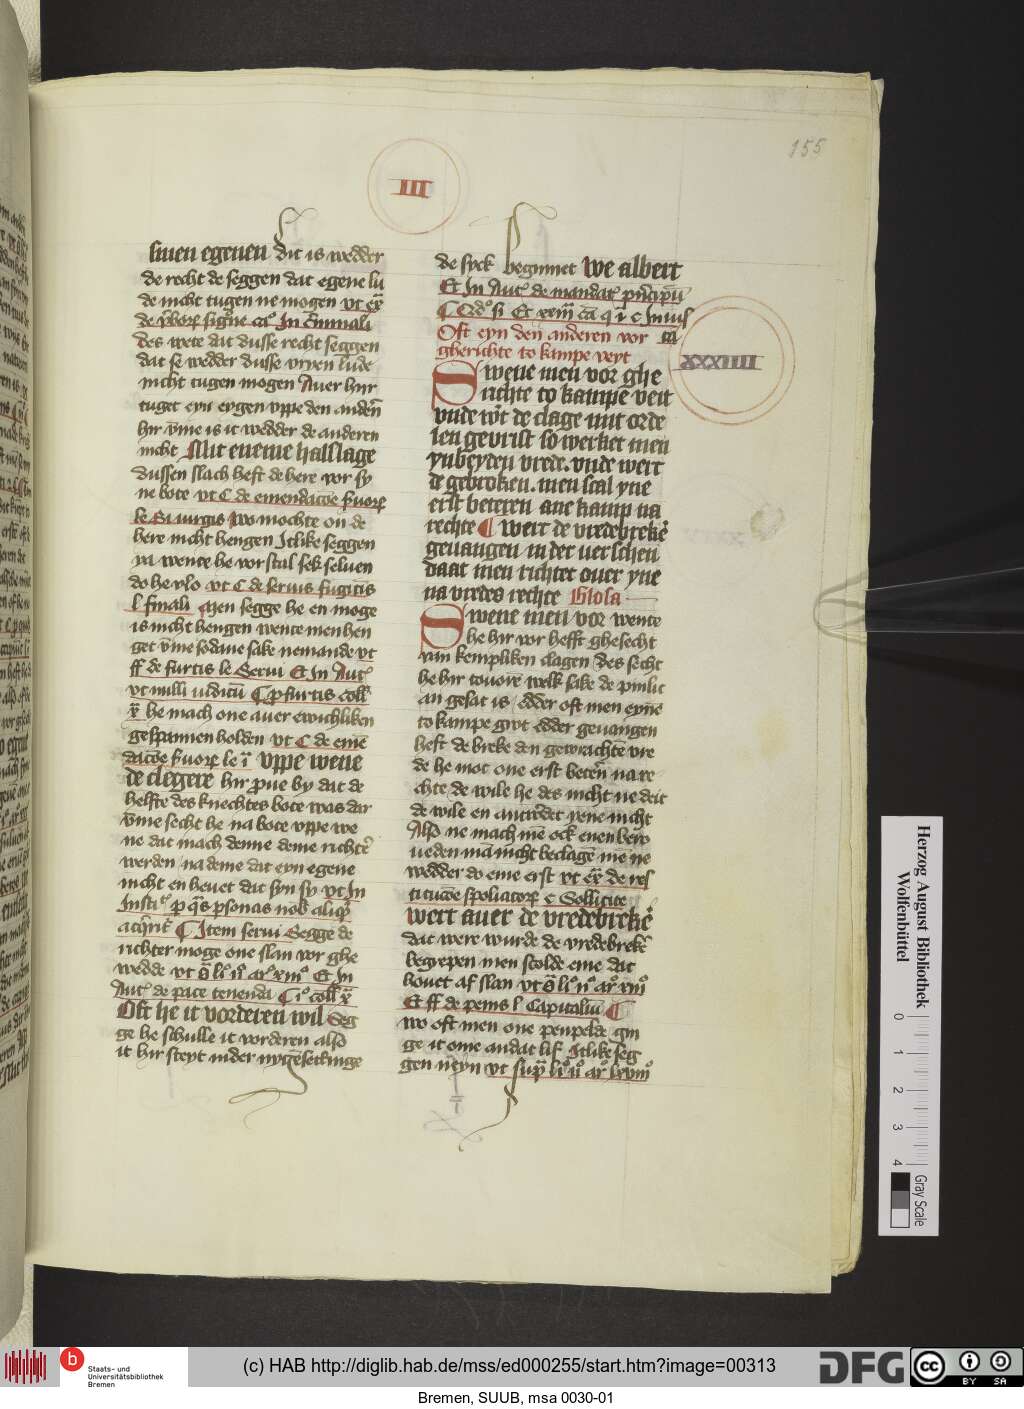 155
III
sinen egenen dit is wedder
de recht de seggen dat egene lu
de nicht tugen ne mogen vt ex̄
des wete dat dusse recht seggen
dat se wedder dusse vryen lude
nicht tugen mogen Auer hyr
tuget eyn eygen vppe den andeñ
hyr vm̄e is it wedder de anderen
nicht Mit eneme halslage
dussen slach heft de here vor sy
ne bote vt C de emendacōe
wo mochte on de
here nicht hengen Itlike seggen
ya wente he vorstal sek seluen
do he vlo vt C de seruis fugitiis
l finali Men segge he en moge
is nicht hengen wente men hen
get vm̄e sodane sake nemande vt
ff de furtis le Serui Et In Aut̄
vt nulli
he mach one auer ewichliken
gespannen holden vt C de emē
dacōe le i vppe wene
de clegere hir
helfte des knechtes bote was dar
vm̄e secht he na bote vppe we
ne dat mach denne deme richtē
werden na deme dat eyn egene
nicht en heuet dat syn sy vt In
Insti
C Item serui Segge de
richter moge one slan vor ghe
wedde vt
Aut̄ de pace tenenda
Oft he it vorderen wil Seg
ge he schulle it vorderen also
it hir steyt in der nygesettinge
de syck begynnet we albert
Et In Aut̄ de mandat̄
Oft eyn den anderen vor
gherichte to kampe veyt
XXXIIII
Swene men vor ghe
richte to kampe veit
vnde wt̄ de clage mit orde
len gevrist so werket men
yn beyden vrede. vnde wert
de gebroken. men scal yne
erst beteren ane kamp na
rechte C wert de vredebrekē
geuangen in der verschen
daat men richtet ouer yne
na vredes rechte Glosa
Swene men vor wente
he hir vor hefft ghesecht
van kempliken clagen des secht
he hir touorē welk sake de pinlic
an gesat is edder oft men eyn̄e
to kampe grot edder geuangen
heft de breke den gewrachte vre
de he mot one erst beteñ na re
chte de wile he des nicht ne deit
de wile en antwōdet yene nicht
Also ne mach mē ock enen bero
ueden man nicht beclagē me ne
wedder do eme erst vt ex̄ de res
titucōe spoliatorū c Sollicite
wert auer de vredebrekē
dat were wurde de vredebrekē
begrepen men scolde eme dat
houet af slan vt
Et ff de penis l Capitaliū C
wo oft men one
ge it ome andat lif Itlike seg
gen neyn vt
Herzog August Bibliothek
Wolfenbüttel
0
1
2
3
4
Gray Scale
b
Staats- und
Universitätsbibliothek
Bremen
(c) HAB http://diglib.hab.de/mss/ed000255/start.htm?image=00313
DFG
cc
BY SA
Bremen, SUUB, msa 0030-01